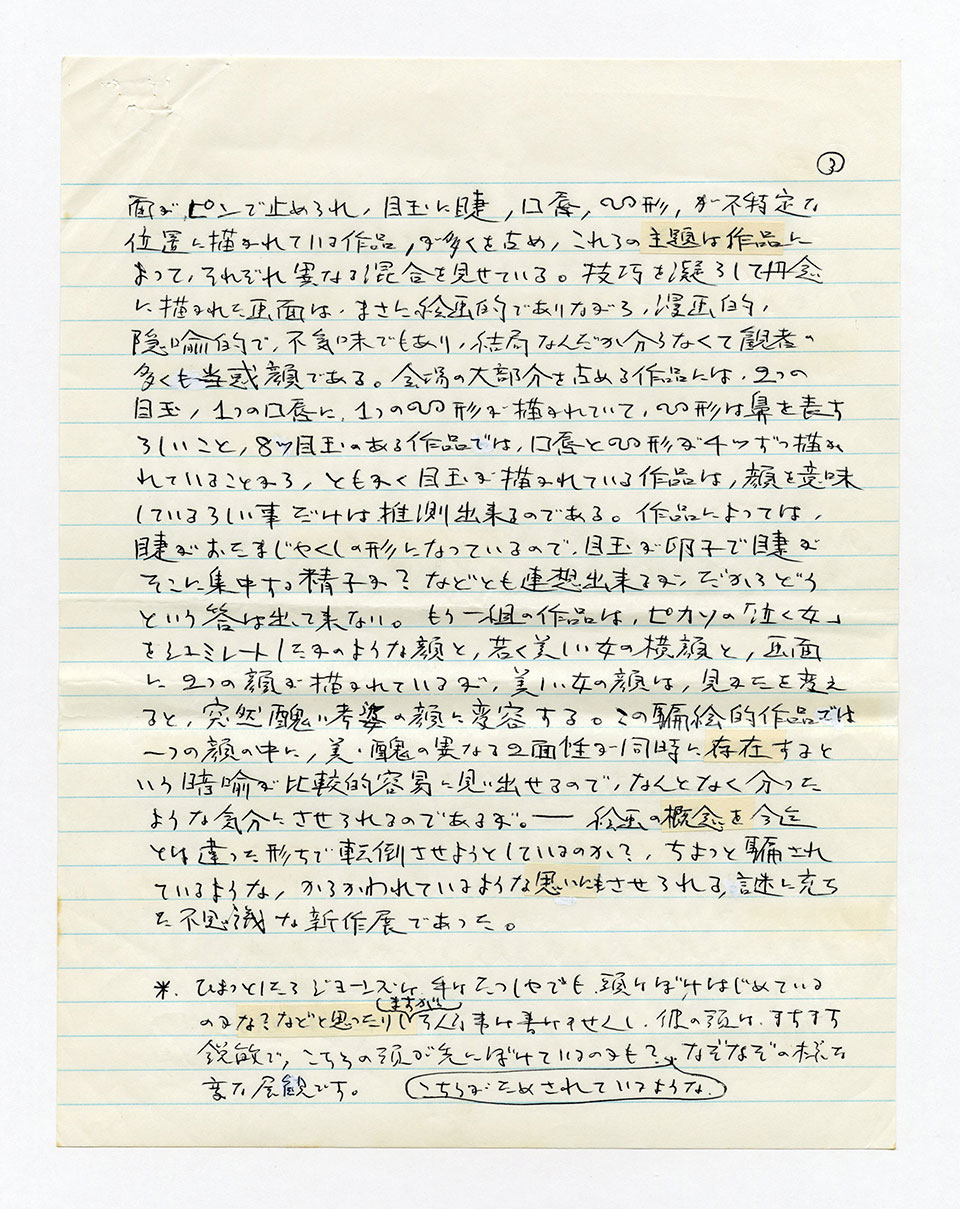 ③
面が、ピンで止められ，目玉に睫，口唇，ᔕ形，が不特定な
位置に描かれている作品，が多くを占め，これらの主題は作品に
よって，それぞれ異なる混合を見せている。技巧を凝らして丹念
に描かれた画面は，まさに絵画的でありながら，漫画的，
隠喩的で，不気味でもあり，結局なんだか分らなくて観者の
多くも当惑顔である。会場の大部分を占める作品には，2つの
目玉，1つの口唇に，1つの形が描かれていて，形は鼻を表す
らしいこと，8ツ目玉のある作品では，口唇と形が4ツずつ描か
れていることから，ともかく目玉が描かれている作品は，顔を意味
しているらしい事だけは推測出来るのである。作品によっては，
睫がおたまじゃくしの形になっているので，目玉が卵子で睫が
そこに集中する精子か？などとも連想出来るが だからどう
という答は出て来ない。もう一組の作品は，ピカソの「泣く女」
をシュミレートしたかのような顔と，若く美しい女の横顔と，画面
に2つの顔が描かれているが，美しい女の顔は，見かたを変え
ると，突然醜い老婆の顔に変容する。この騙絵的作品では
一つの顔の中に，美・醜の異なる2面性が同時に存在すると
いう暗喩が比較的容易に見い出せるので，なんとなく分った
ような気分にさせられるのであるが。— 絵画の概念を今迄
とは違った形ちで転倒させようとしているのか？，ちょっと騙され
ているような，からかわれているような思いにもさせられる，謎に充ち
た不思議な新作展であった。
*. ひょっとしたらジョーンズは，手はたっしゃでも，頭はぼけはじめている
のかな？などと思ったり
（まさか）
事は書けませんし，彼の頭は，ますます
鋭敏で，こちらの頭が先にぼけているのかも？，なぞなぞの様な
変な展観です。 こちらがためされているような